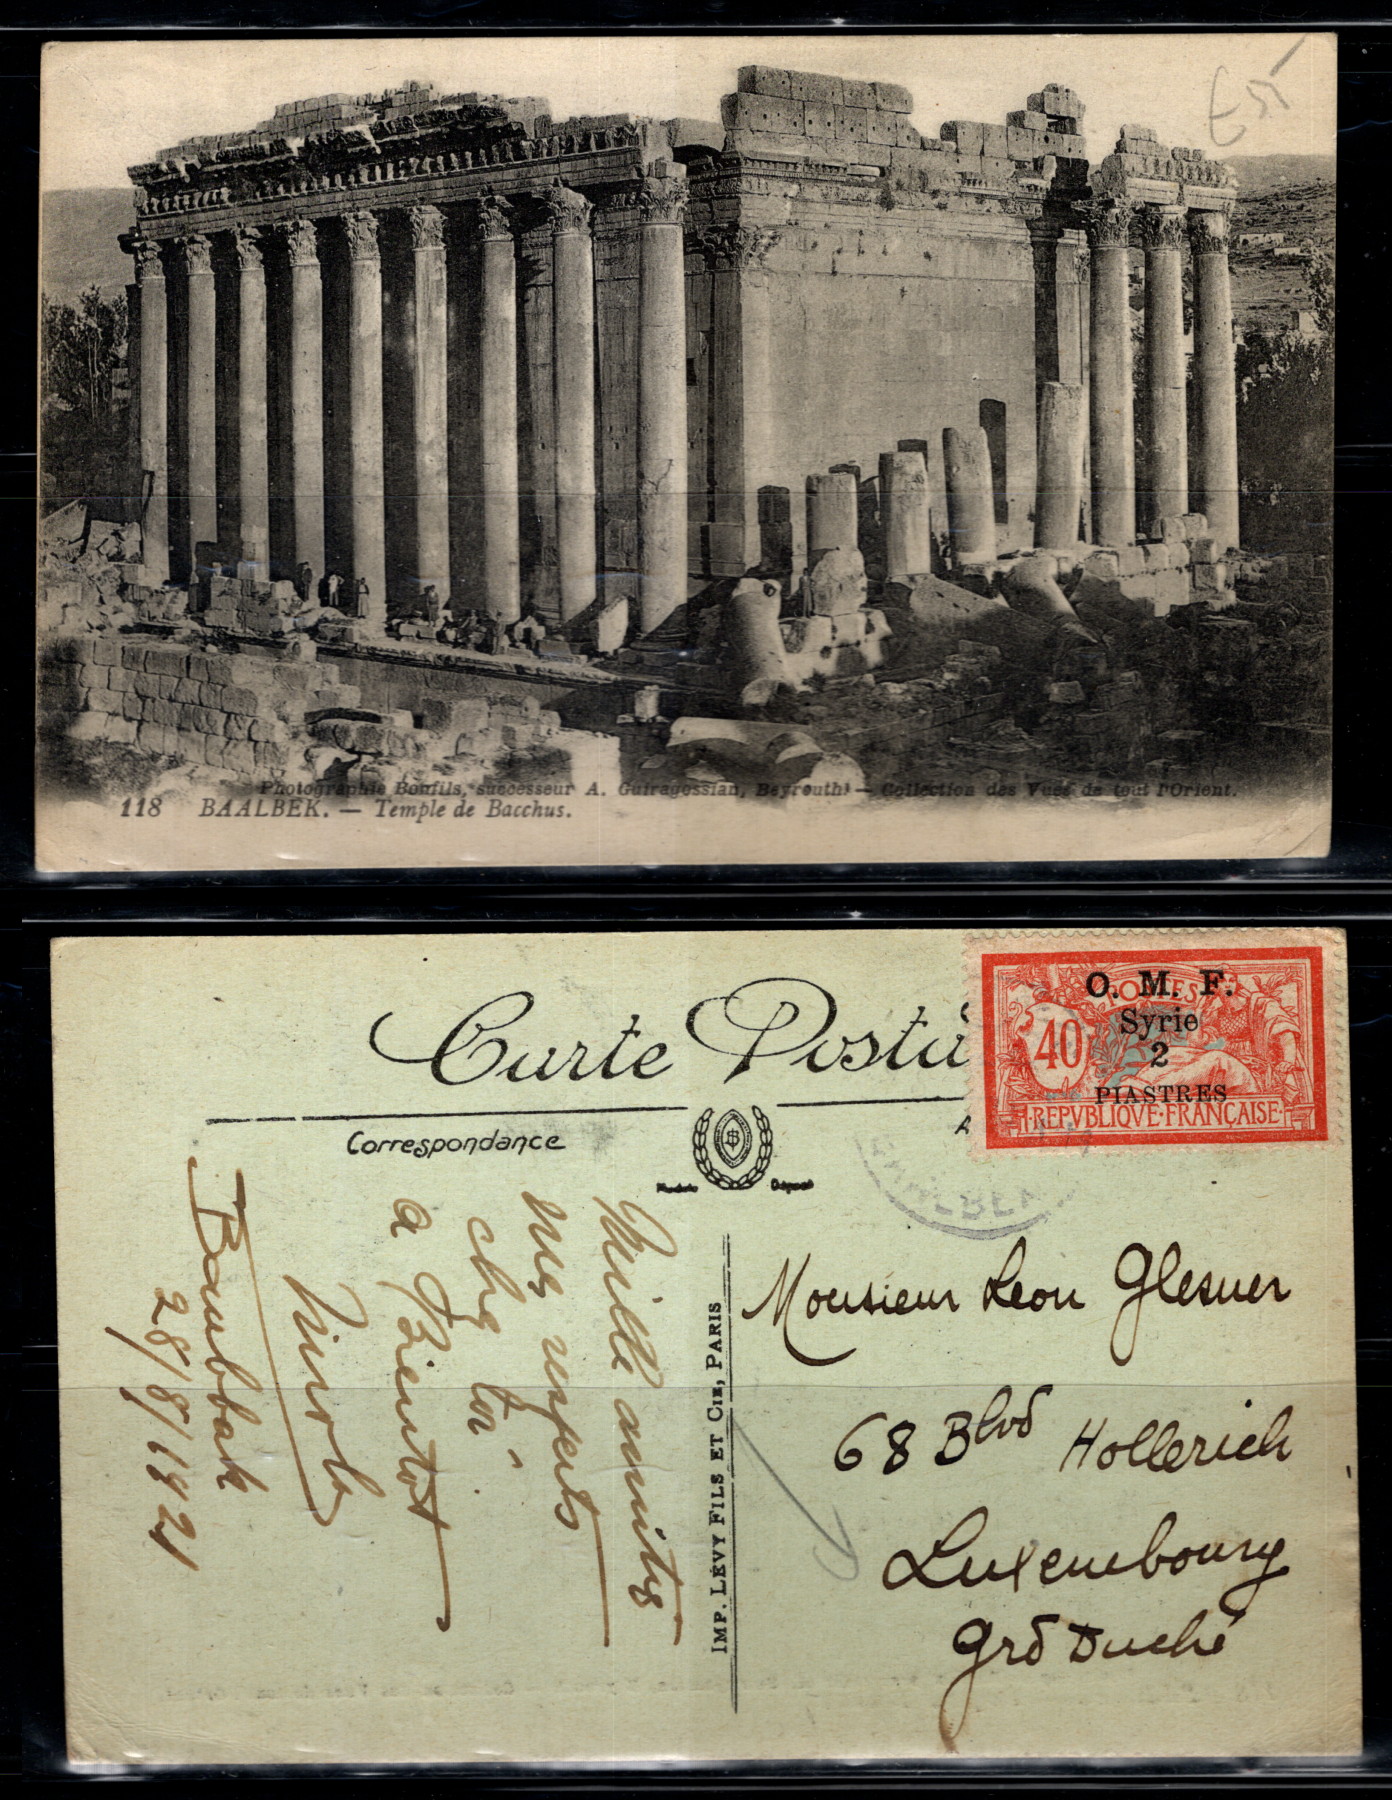 Photographie Bonfils, successeur A. Guiragossian, Beyrouth — Collection des Vues de tout l'Orient.
118 BAALBEK. — Temple de Bacchus.
Carte Posta
O. M. F.
POSTES
Syrie
40
2
PIASTRES
REPVBLIQVE·FRANÇAISE
Correspondance
Modèle Déposé
BAALBEK
Mille amitiés
mes respects
chez toi
a Bientot
28/8/1921
IMP. LÉVY FILS ET CIE, PARIS
Monsieur Leon Glesner
68 Blvd Hollerich
Luxembourg
Grd Duché